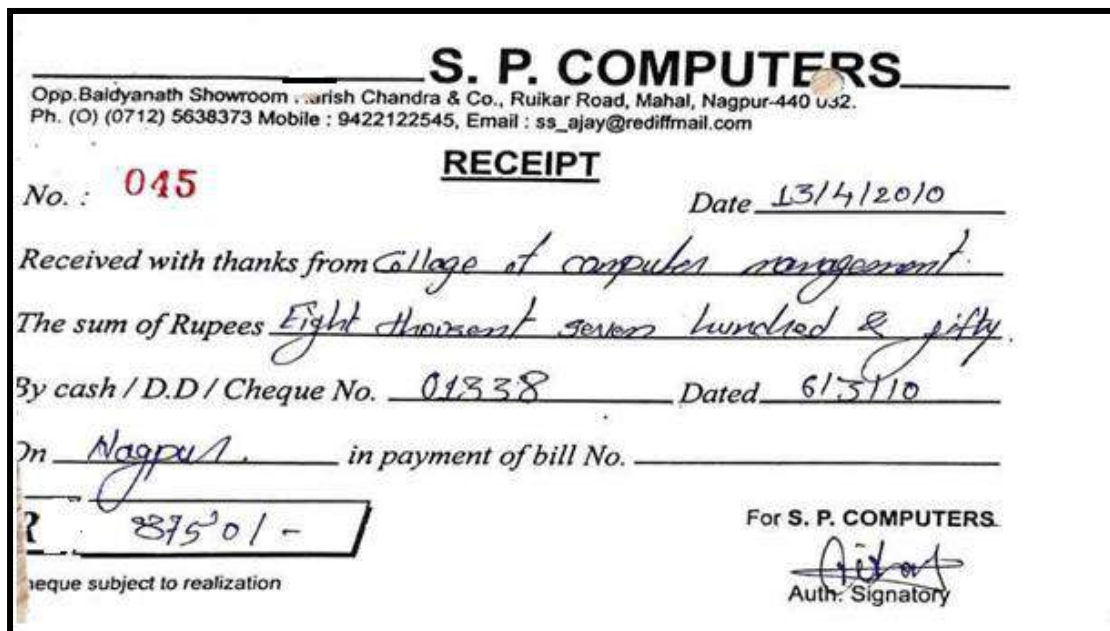 S. P. COMPUTERS
Opp.Baidyanath Showroom Chandra & Co., Ruikar Road, Mahal, Nagpur-440 032.
Ph. (O) (0712) 5638373 Mobile : 9422122545, Email : ss_ajay@rediffmail.com
RECEIPT
No. : 045
Date 13/4/2010
Received with thanks from Collage of computer management.
The sum of Rupees Eight thousent seven hundred & fifty.
By cash / D.D / Cheque No. 01338 Dated 6/3/10
On Nagpur. in payment of bill No.
8750/-
For S. P. COMPUTERS
heque subject to realization
Auth. Signatory